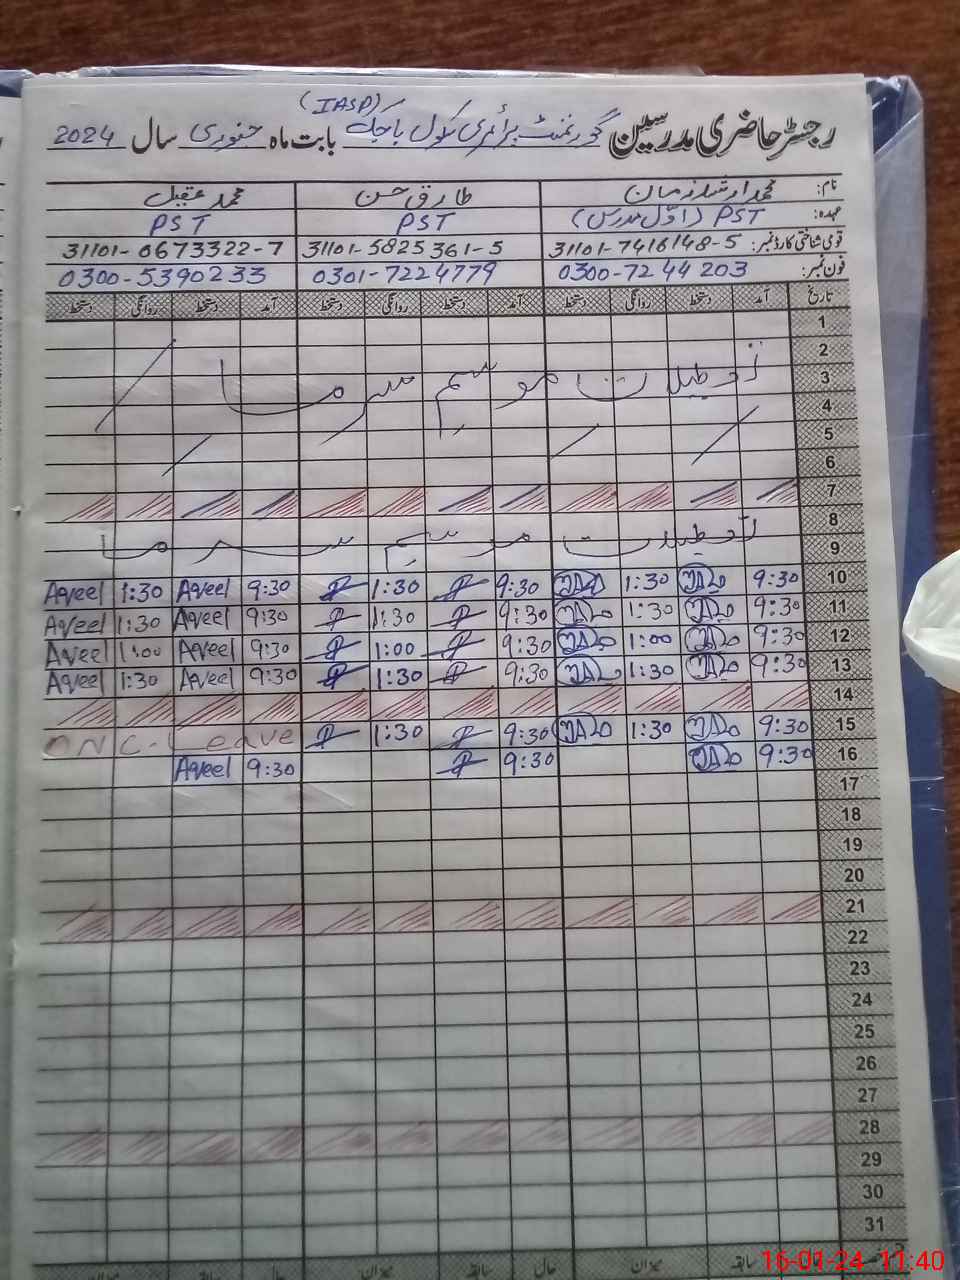 (IASP)
رجسٹر حاضری مدرسین گورنمنٹ پرائمری سکول بابت ماہ جنوری سال 2024
نام: محمد ارشد زمان طارق حسن محمد عقیل
عہدہ: PST (اول مدرس) PST PST
قومی شناختی کارڈ نمبر: 31101-7416148-5 31101-5825361-5 31101-0673322-7
فون نمبر: 0300-7244203 0301-7224779 0300-5390233
تاریخ آمد دستخط روانگی دستخط آمد دستخط روانگی دستخط آمد دستخط روانگی دستخط
1
2
3 تعطیلات موسم سرما
4
5
6
7
8 تعطیلات موسم سرما
9
10 9:30 1:30 9:30 1:30 9:30 Aqeel 1:30 Aqeel
11 9:30 1:30 9:30 1:30 9:30 Aqeel 1:30 Aqeel
12 9:30 1:00 9:30 1:00 9:30 Aqeel 1:00 Aqeel
13 9:30 1:30 9:30 1:30 9:30 Aqeel 1:30 Aqeel
14
15 9:30 1:30 9:30 1:30 ON C. Leave
16 9:30 9:30 9:30 Aqeel
17
18
19
20
21
22
23
24
25
26
27
28
29
30
31
سابقہ حال میزان سابقہ حال میزان سابقہ حال میزان
16-01-24 11:40